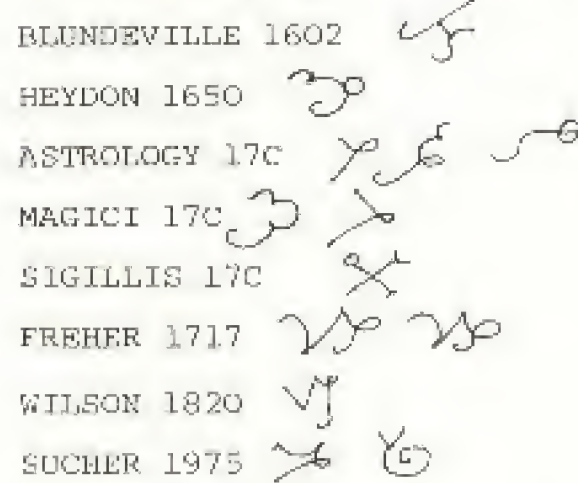 BLUNDEVILLE 1602
HEYDON 1650
ASTROLOGY 17C
MAGICI 17C
SIGILLIS 17C
FREHER 1717
WILSON 1820
SUCHER 1975